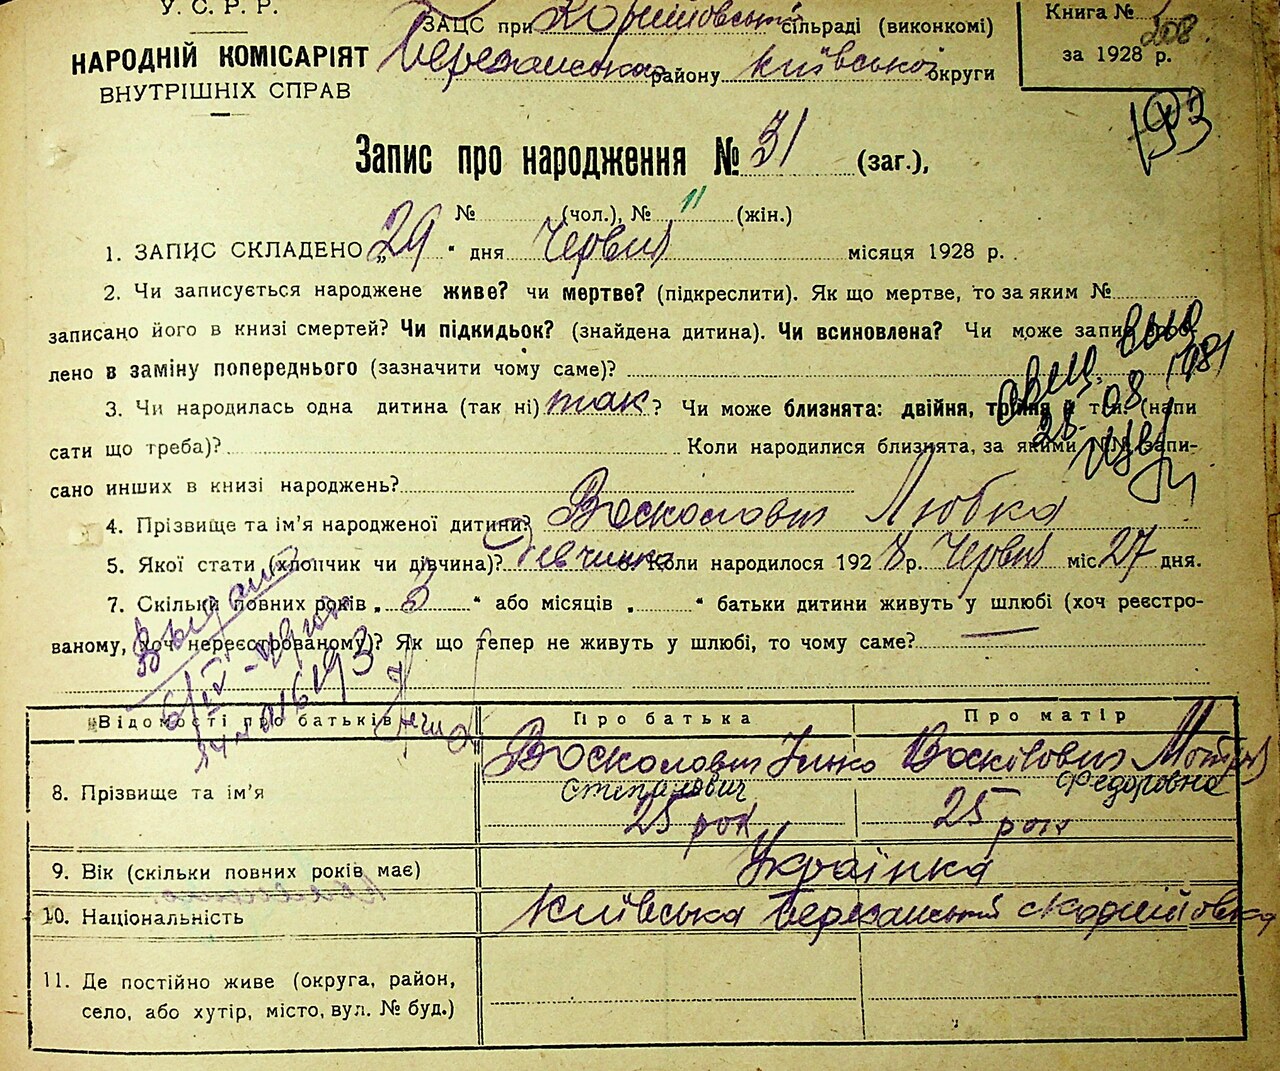 У. С. Р. Р.
НАРОДНІЙ КОМІСАРІЯТ
ВНУТРІШНІХ СПРАВ
ЗАЦС при сільраді (виконкомі)
району Київської округи
Книга №
за 1928 р.
208
193
Запис про народження № 31 (заг.),
№ (чол.), № 11 (жін.)
1. ЗАПИС СКЛАДЕНО „29" дня Червня місяця 1928 р.
2. Чи записується народжене живе? чи мертве? (підкреслити). Як що мертве, то за яким №
записано його в книзі смертей? Чи підкидьок? (знайдена дитина). Чи всиновлена? Чи може запис зроб-
лено в заміну попереднього (зазначити чому саме)?
3. Чи народилась одна дитина (так ні) так? Чи може близнята: двійня, трійня й т.п. (напи
сати що треба)? Коли народилися близнята, за якими №№ запи-
сано инших в книзі народжень?
28.08.1981
4. Прізвище та ім'я народженої дитини? Восколович Любка
5. Якої стати (хлопчик чи дівчина)? Девчинка 6. Коли народилося 1928 р. Червня міс. 27 дня.
7. Скільки повних років „3" або місяців „ " батьки дитини живуть у шлюбі (хоч реєстро-
ваному, хоч нереєстрованому)? Як що тепер не живуть у шлюбі, то чому саме? —
Відомості про батьків
Про батька
Про матір
8. Прізвище та ім'я
Восколович Ілько
Степанович
Мотря
Федоровна
25 рок
25 рок
9. Вік (скільки повних років має)
Українка
10. Національність
Київська
11. Де постійно живе (округа, район,
село, або хутір, місто, вул. № буд.)